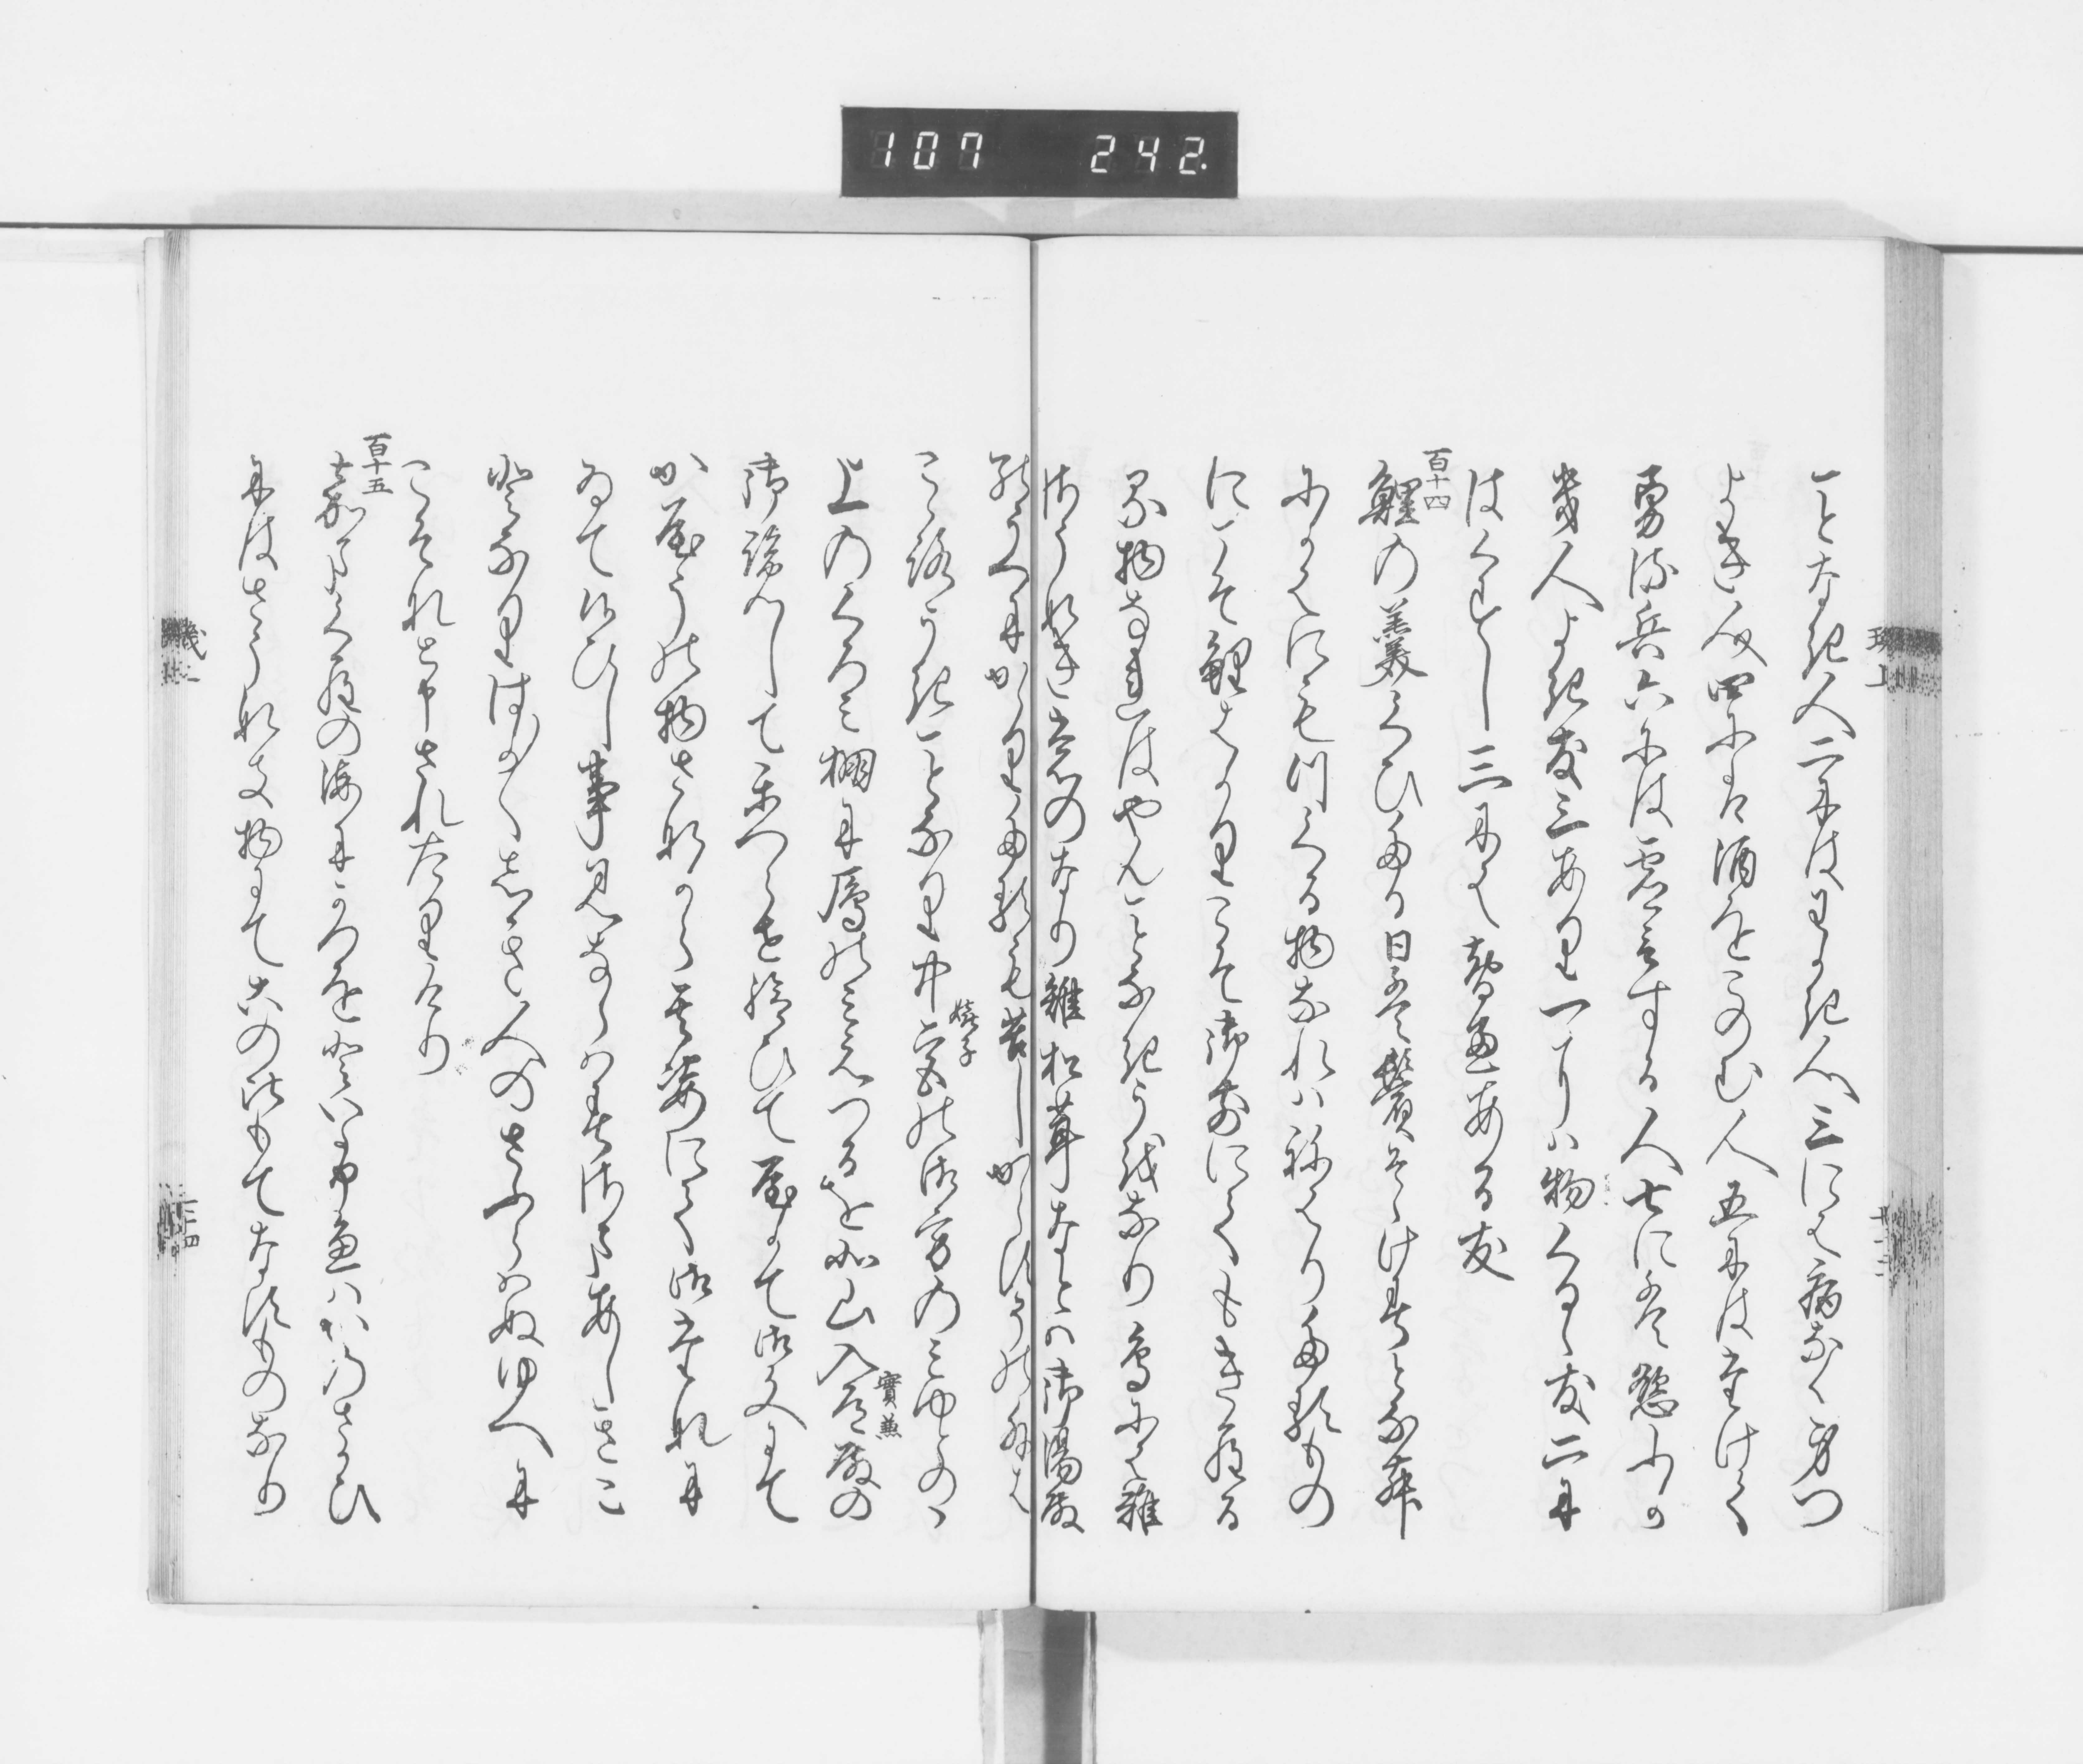 107 242.
ことなき人二にはわかき人三には病なく身つ
よき人四には酒をこのむ人五にはたけく
勇める兵六には虚言する人七には慾ふか
き人よき友三あり一には物くるゝ友二に
はくすし三には智恵ある友
百十四
鯉の羹くひたる日は鬢そゝけすとなん膠
にもつくる物なれはねはりたるもの
にこそ鯉はかりこそ御前にてもきらるゝ
る物なれはやんことなき魚なり鳥には雉
さうなきものなり雉松茸なとは御湯殿
のうへにかゝりたるも苦しからすその外は
こゝろうきことなり中宮の御方の御ゆとのゝ
嬉子
上のくろみ棚に鴈のみえつるを北山入道殿の
實兼
御覧して帰らせ給ひて屋かて御文にて
か屋うの物さなからその姿にて御たなに
ゐて候ひし事見ならはすさまあしきこ
となりはか〳〵しき人のさふらはぬゆへに
こそなと申されたりけり
百十五
かまくらの海にかつをと云魚はかのさかひ
にはさうなき物にてこの比もてなすものなり